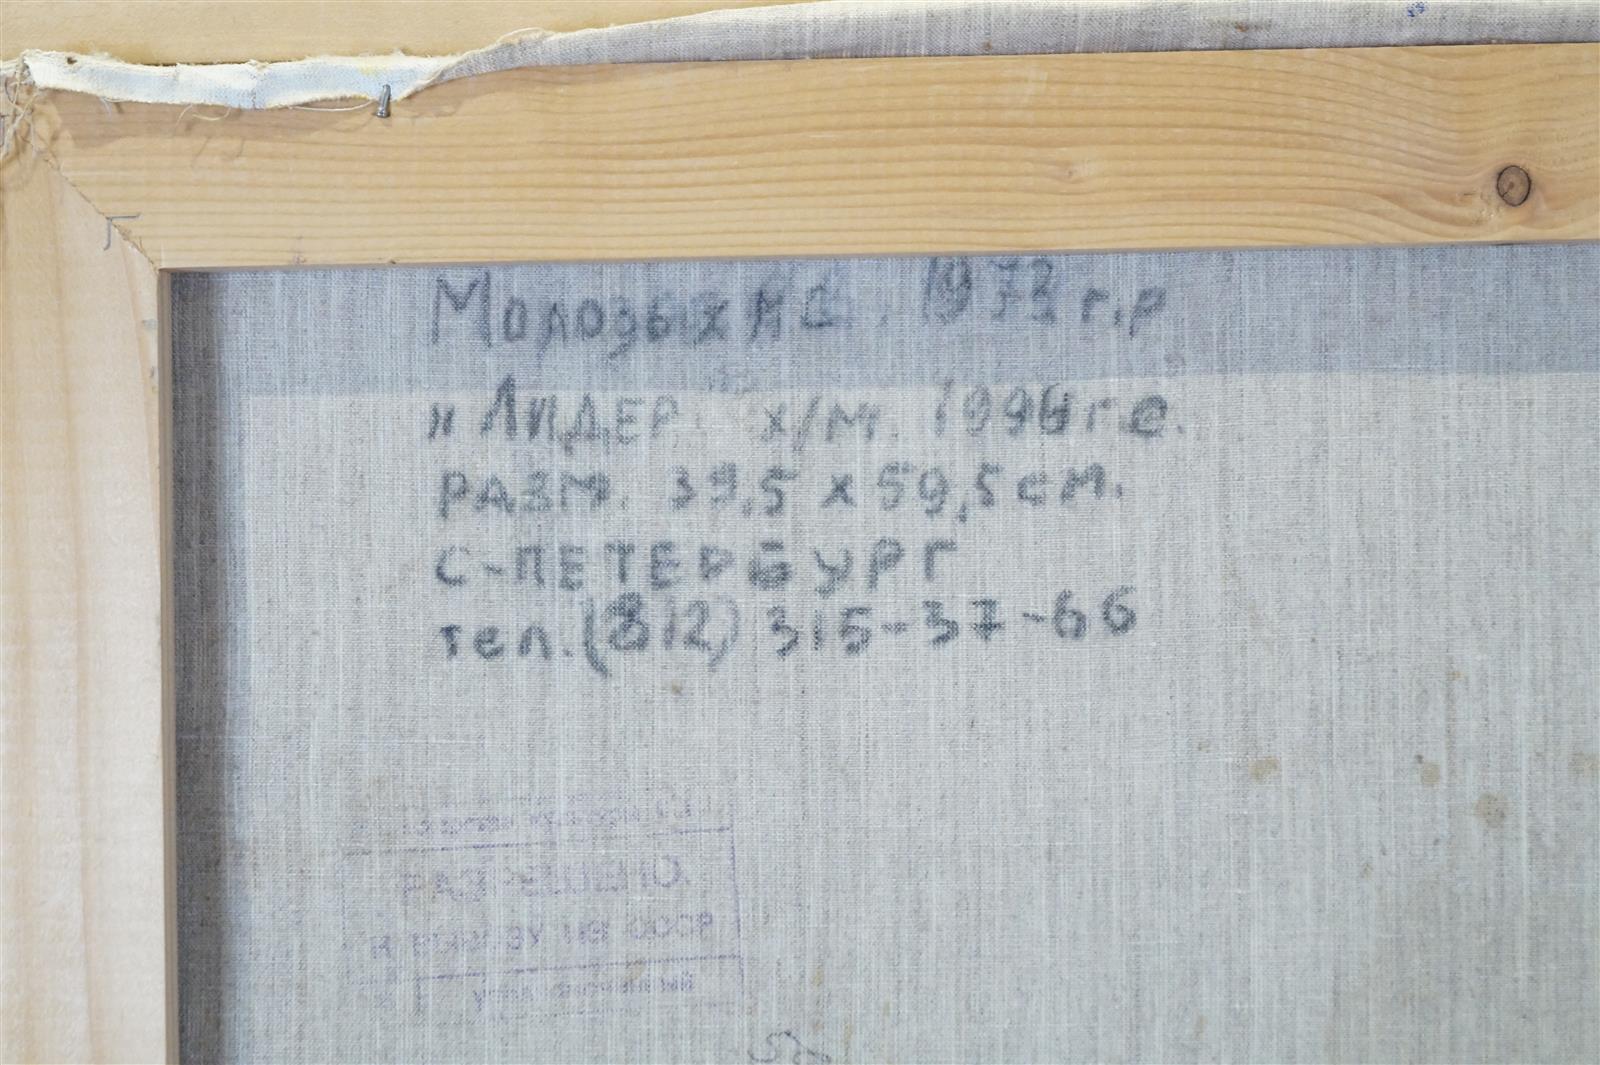 Молозых 1973 г.р
„ЛИДЕР х/м. 1996 г.с.
РАЗМ. 39,5 х 59,5 см.
С-ПЕТЕРБУРГ
тел. (812) 315-37-66
РАЗРЕШЕНО
К ВЫВОЗУ ИЗ СССР